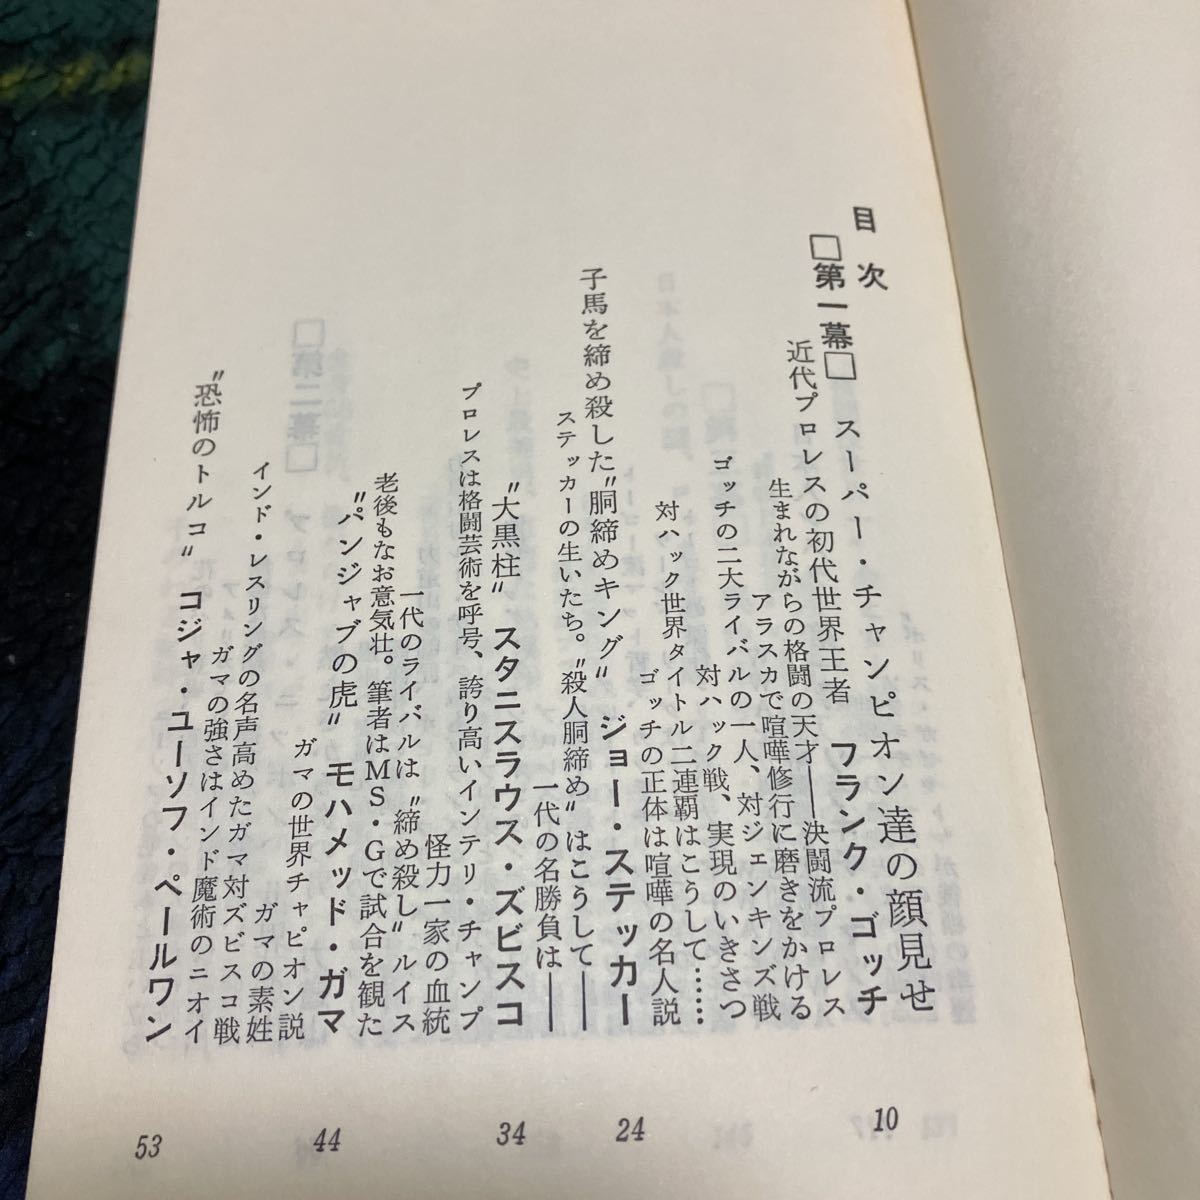 目次
□第一幕□ スーパー・チャンピオン達の顔見せ
近代プロレスの初代世界王者 フランク・ゴッチ 10
生まれながらの格闘の天才――決闘流プロレス
アラスカで喧嘩修行に磨きをかける
ゴッチの二大ライバルの一人、対ジェンキンズ戦
対ハック戦、実現のいきさつ
対ハック世界タイトル二連覇はこうして……
ゴッチの正体は喧嘩の名人説
子馬を締め殺した〝胴締めキング〟 ジョー・ステッカー 24
ステッカーの生いたち。〝殺人胴締め〟はこうして――
一代の名勝負は――
〝大黒柱〟 スタニスラウス・ズビスコ 34
プロレスは格闘芸術を呼号、誇り高いインテリ・チャンプ
怪力一家の血統
一代のライバルは〝締め殺し〟ルイス
老後もなお意気壮。筆者はMS・Gで試合を観た
〝パンジャブの虎〟 モハメッド・ガマ 44
ガマの世界チャピオン説
ガマの素姓
インド・レスリングの名声高めたガマ対ズビスコ戦
ガマの強さはインド魔術のニオイ
〝恐怖のトルコ〟 コジャ・ユーソフ・ペールワン 53